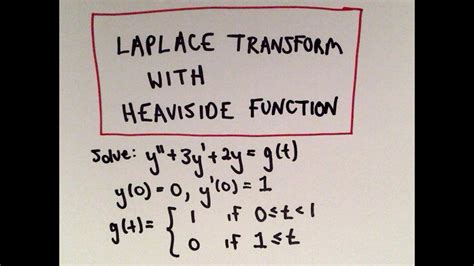 LAPLACE TRANSFORM
WITH
HEAVISIDE FUNCTION
Solve: y"+3y'+2y = g(t)
y(0)=0, y'(0)=1
g(t)= { 1 if 0≤t<1
0 if 1≤t